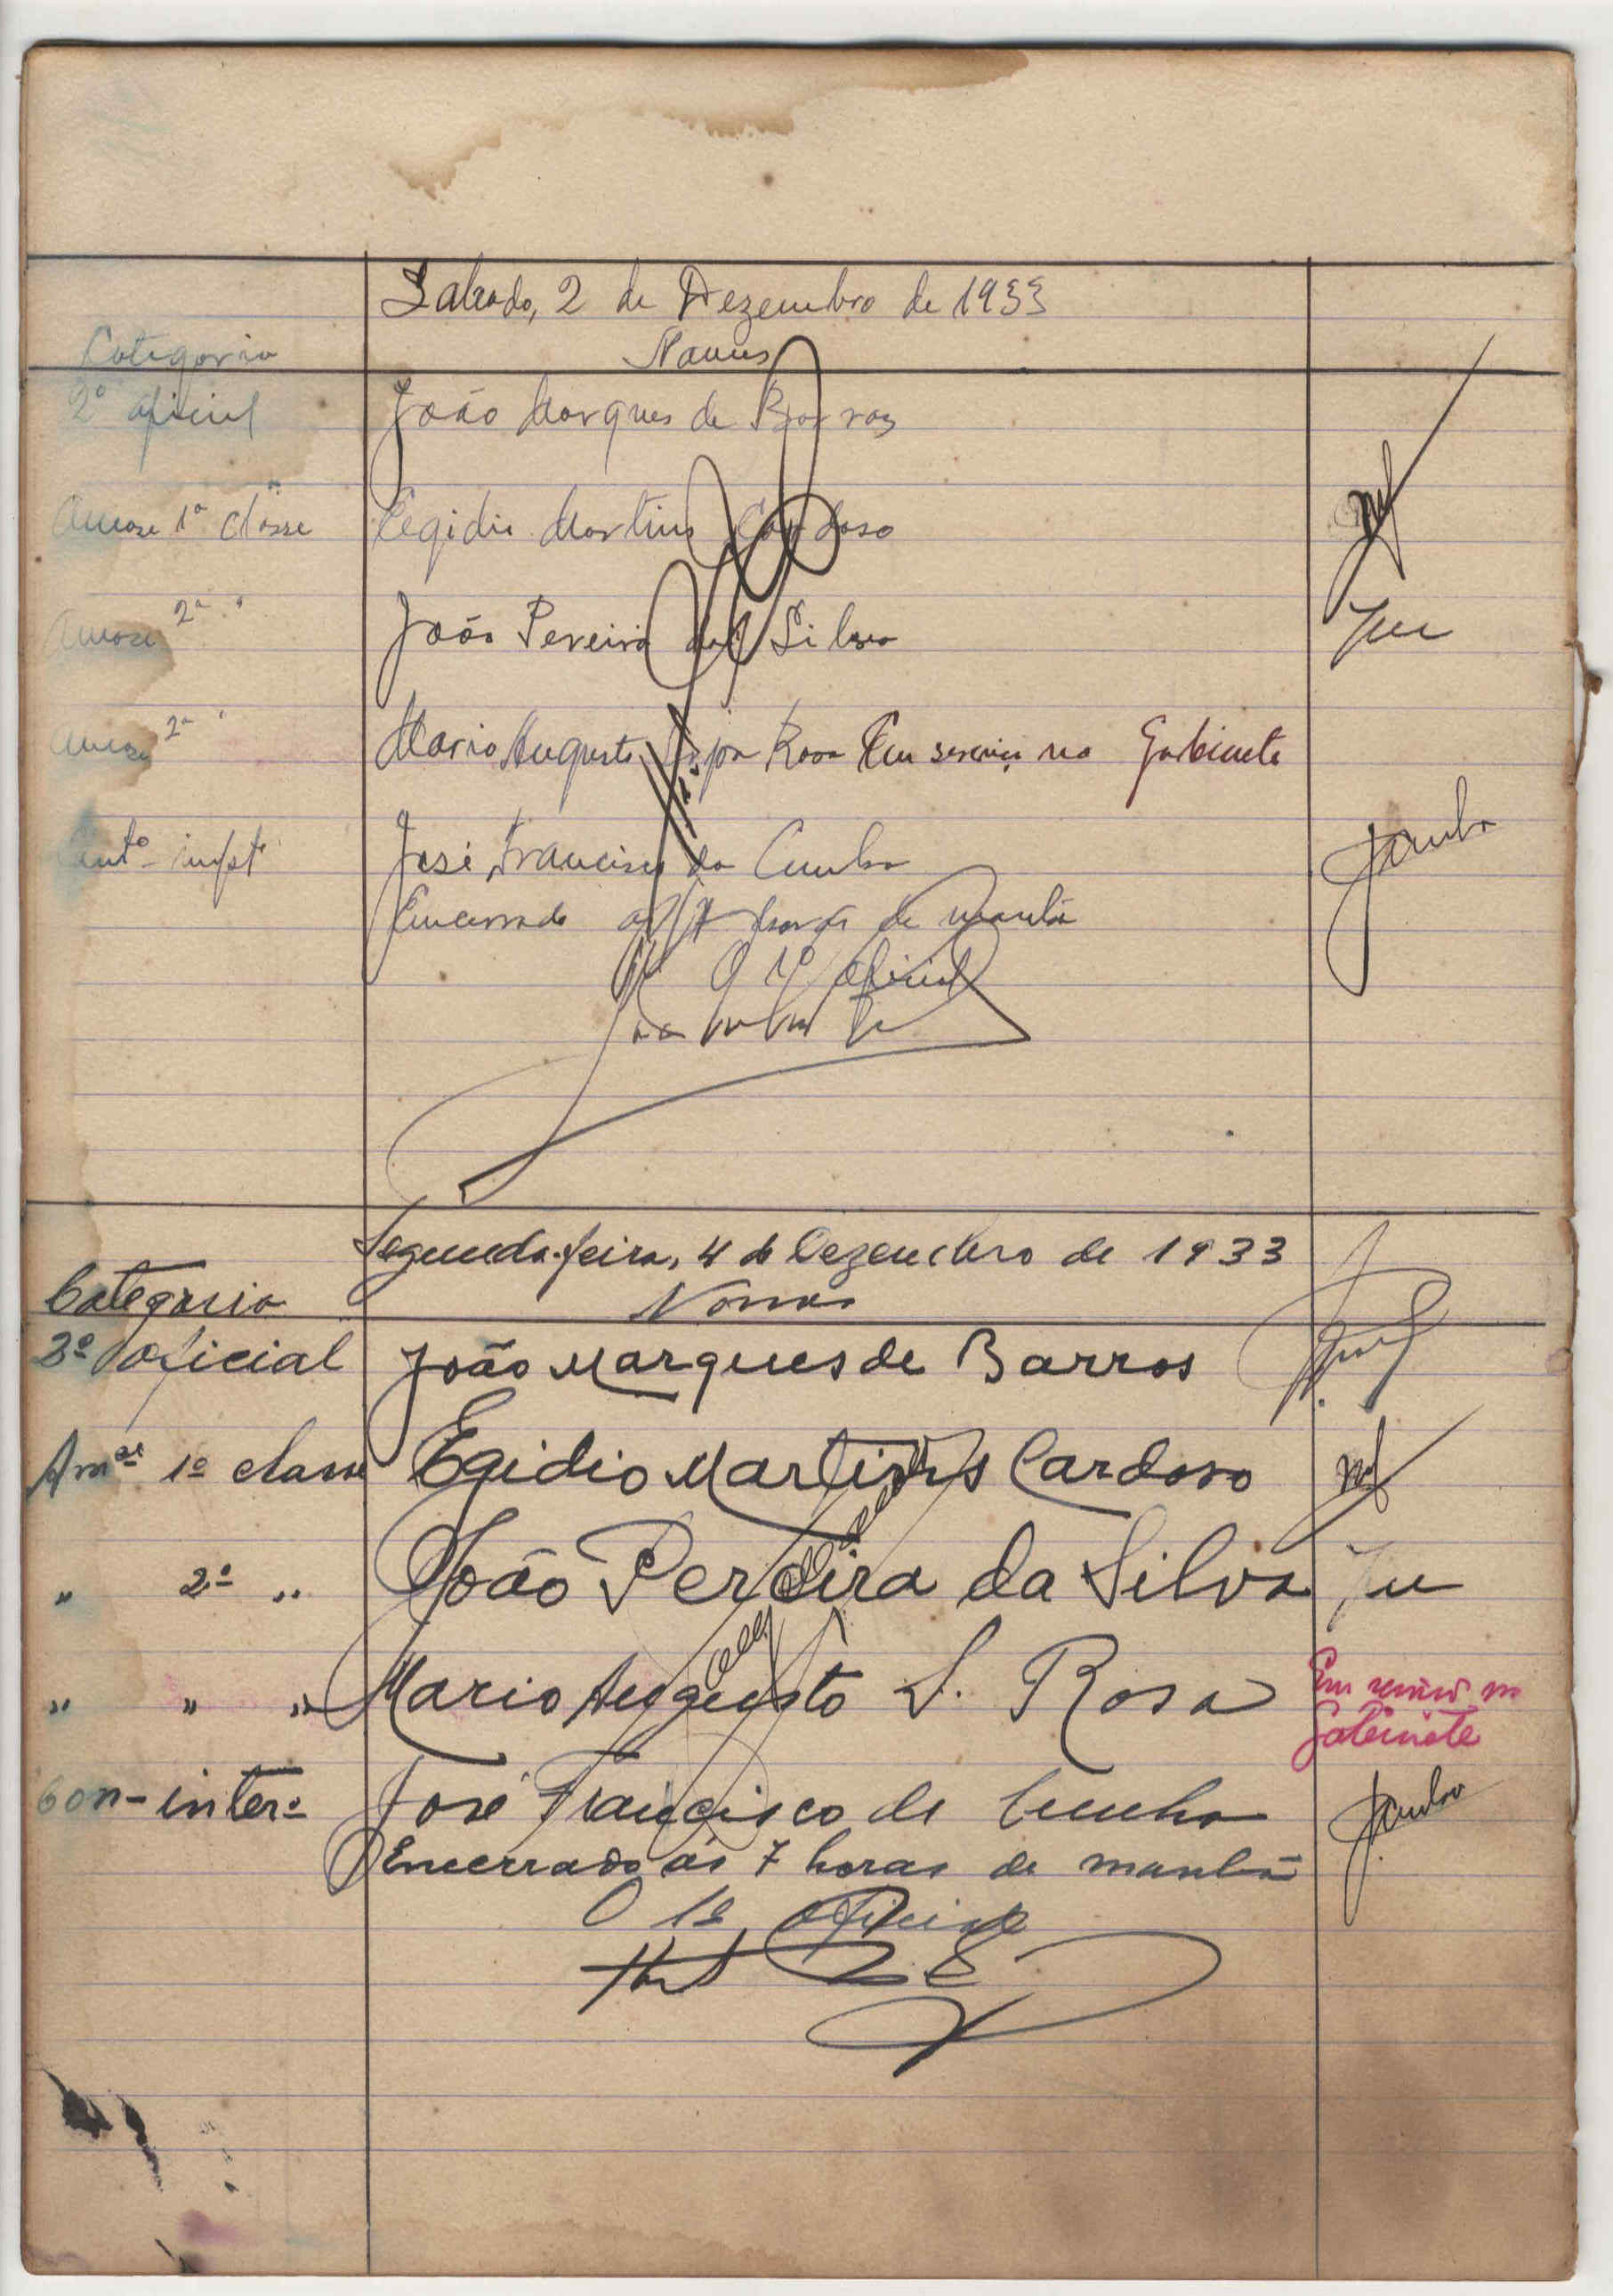 Sabado, 2 de Dezembro de 1933
Categoria Nomes
2º oficial João Marques de Barros
Amose 1ª classe Egidio Martins Cardoso
Amose 2ª " João Pereira da Silva
Amose 2ª " Mario Augusto Rosa Em serviço no Gabinete
José Francisco da Cunha JCunha
Encerrado ás 7 horas da manhã
O 1º oficial
Segunda-feira, 4 de Dezembro de 1933
Categoria Nomes
2º oficial João Marques de Barros
Am.. 1ª classe Egidio Martins Cardoso
" 2ª " João Pereira da Silva
" " " Mario Augusto S. Rosa Em serviço no
Gabinete
Con-inter.º José Francisco da Cunha JCunha
Encerrado ás 7 horas da manhã
O 1º oficial